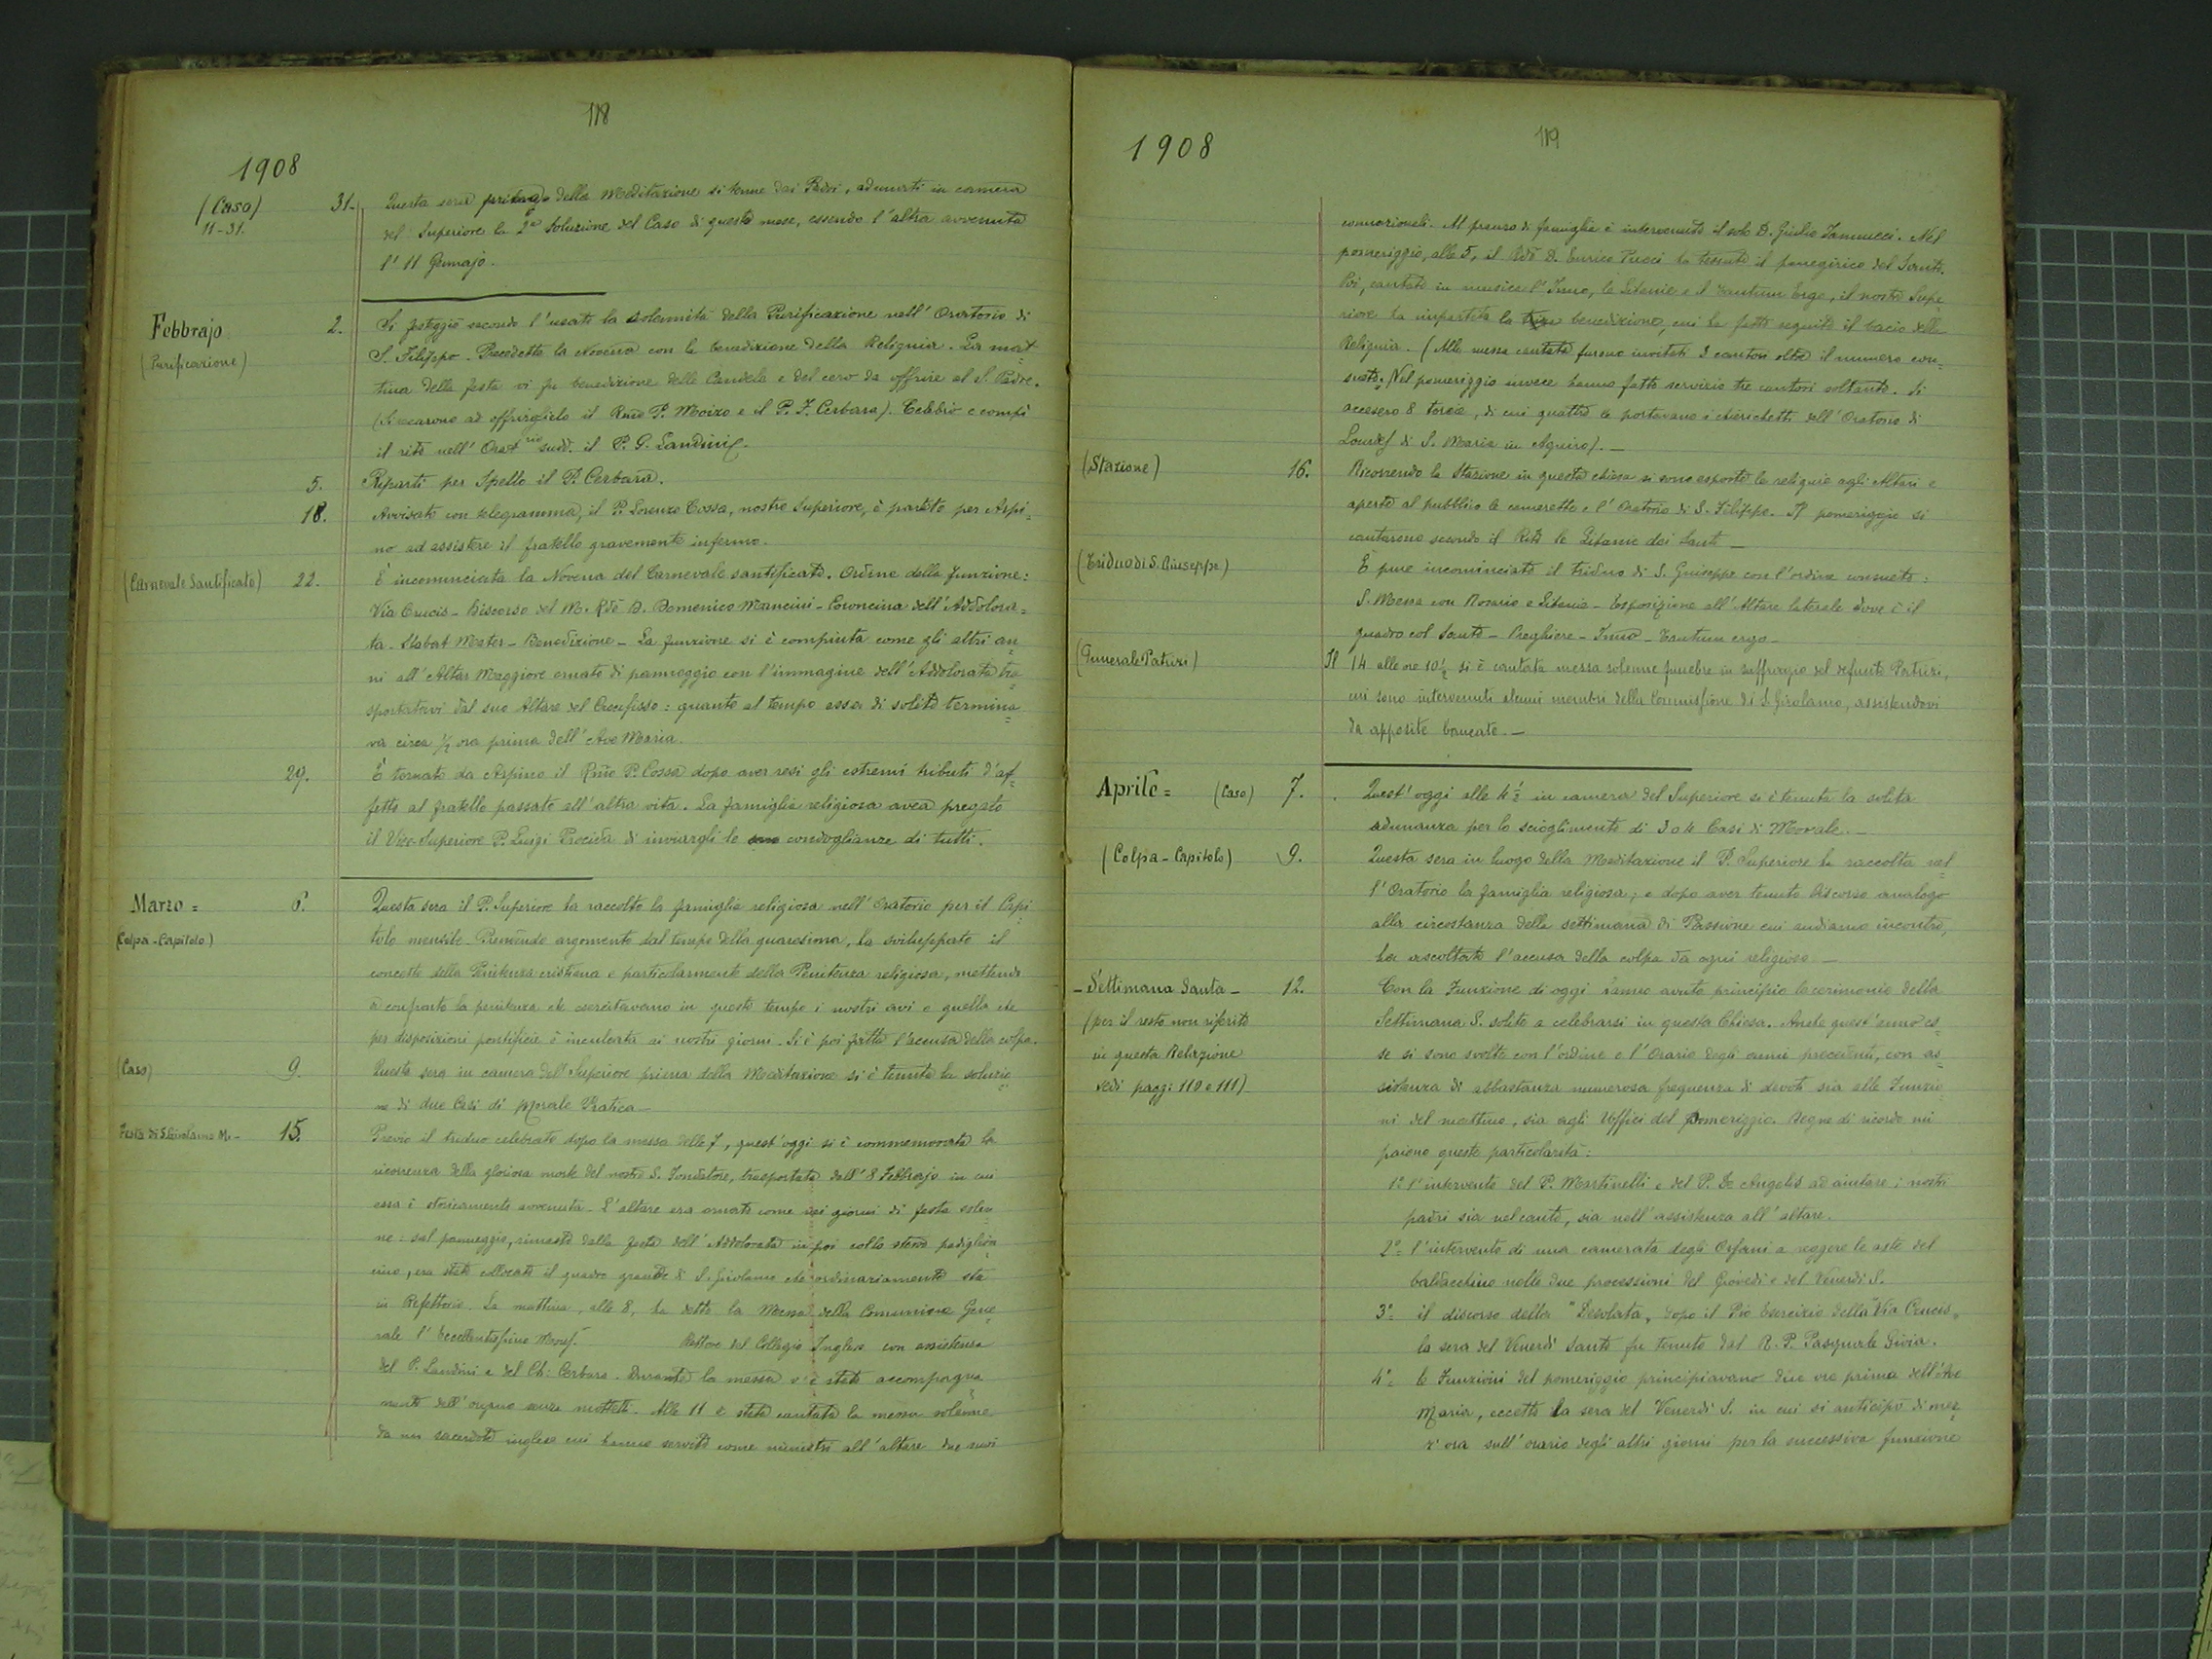 118
1908
(Caso) 31. Questa sera prima della Meditazione si tenne dai Padri, adunati in camera
11-31. del Superiore la 2ª Soluzione del Caso di questo mese, essendo l'altra avvenuta
l'11 Gennajo.
Febbrajo 2. Si festeggiò secondo l'usato la solennità della Purificazione nell'Oratorio di
(Purificazione) S. Filippo. Precedette la Novena con la benedizione della Reliquia. La mat=
tina della festa vi fu benedizione delle Candele e del cero da offrire al S. Padre.
(Si recarono ad offrirglielo il Rmo P. Moizo e il P. F. Cerbara). Celebrò e compì
il rito nell'Orat.rio sudd. il P. G. Landini.
5. Ripartì per Spello il P. Cerbara.
18. Avvisato con telegramma, il P. Lorenzo Cossa, nostro Superiore, è partito per Arpi=
no ad assistere il fratello gravemente infermo.
(Carnevale Santificato) 22. È incominciata la Novena del Carnevale santificato. Ordine della funzione:
Via Crucis - Discorso del M. Rdo D. Domenico Mancini - Coroncina dell'Addolora=
ta - Stabat Mater - Benedizione - La funzione si è compiuta come gli altri an=
ni all'Altar Maggiore ornato di panneggio con l'immagine dell'Addolorata tra=
sportatavi dal suo Altare del Crocifisso: quanto al tempo essa di solito termina=
va circa ½ ora prima dell'Ave Maria.
29. È tornato da Arpino il Rmo P. Cossa dopo aver resi gli estremi tributi d'af=
fetto al fratello passato all'altra vita. La famiglia religiosa avea pregato
il Vice-Superiore P. Luigi Procida di inviargli le condoglianze di tutti.
Marzo = 6. Questa sera il P. Superiore ha raccolto la famiglia religiosa nell'Oratorio per il Capi=
(Colpa-Capitolo) tolo mensile. Prendendo argomento dal tempo della quaresima, ha sviluppato il
concetto della Penitenza cristiana e particolarmente della Penitenza religiosa, mettendo
a confronto la penitenza che esercitavano in questo tempo i nostri avi e quella che
per disposizioni pontificie è inculcata ai nostri giorni. Si è poi fatta l'accusa della colpa.
(Caso) 9. Questa sera in camera del Superiore prima della Meditazione si è tenuta la soluzio=
ne di due Casi di Morale Pratica —
Festa di S. Girolamo M. - 15. Previo il triduo celebrato dopo la messa delle 7, quest'oggi si è commemorata la
ricorrenza della gloriosa morte del nostro S. Fondatore, trasportata dall'8 Febbrajo in cui
essa è storicamente avvenuta - L'altare era ornato come nei giorni di festa solen=
ne: sul panneggio, rimasto dalla festa dell'Addolorata in poi collo stesso padiglion=
cino, era stato collocato il quadro grande di S. Girolamo che ordinariamente sta
in Refettorio. La mattina, alle 8, ha detto la Messa della Comunione Gene=
rale l'Eccellentissimo Mons. Rettore del Collegio Inglese con assistenza
del P. Landini e del Ch: Cerbara. Durante la messa v'è stato accompagna=
mento dell'organo senza mottetti. Alle 11 è stata cantata la messa solenne
da un sacerdote inglese cui hanno servito come ministri all'altare due suoi
119
1908
connazionali. Al pranzo di famiglia è intervenuto il solo D. Giulio Iannucci. Nel
pomeriggio, alle 5, il Rdo D. Enrico Pucci ha tessuto il panegirico del Santo.
Poi, cantato in musica l'Inno, le Litanie e il Tantum Ergo, il nostro Supe=
riore ha impartita la benedizione, cui ha fatto seguito il bacio della
Reliquia. (Alla messa cantata furono invitati 3 cantori oltre il numero con=
sueto. Nel pomeriggio invece hanno fatto servizio tre cantori soltanto. Si
accesero 8 torcie, di cui quattro le portavano i chierichetti dell'Oratorio di
Lourdes di S. Maria in Aquiro). —
(Stazione) 16. Ricorrendo la Stazione in questa chiesa si sono esposte le reliquie agli Altari e
aperte al pubblico le camerette e l'Oratorio di S. Filippo. Il pomeriggio si
cantarono secondo il Rito le Litanie dei Santi —
(Triduo di S. Giuseppe) È pure incominciato il triduo di S. Giuseppe con l'ordine consueto:
S. Messa con Rosario e Litanie - Esposizione all'Altare laterale dove è il
quadro col Santo - Preghiere - Inno - Tantum ergo -
(Funerale Patrizi) Il 14 alle ore 10½ si è cantata messa solenne funebre in suffragio del defunto Patrizi,
cui sono intervenuti alcuni membri della Commissione di S. Girolamo, assistendovi
da apposite bancate. —
Aprile = (Caso) 7. Quest'oggi alle 4½ in camera del Superiore si è tenuta la solita
adunanza per lo scioglimento di 3 o 4 Casi di Morale. —
(Colpa-Capitolo) 9. Questa sera in luogo della Meditazione il P. Superiore ha raccolta nel=
l'Oratorio la famiglia religiosa; e dopo aver tenuto discorso analogo
alla circostanza della settimana di Passione cui andiamo incontro,
ha ascoltato l'accusa della colpa da ogni religioso —
- Settimana Santa - 12. Con la Funzione di oggi hanno avuto principio le cerimonie della
(per il resto non riferito Settimana S. solite a celebrarsi in questa Chiesa. Anche quest'anno es=
in questa Relazione se si sono svolte con l'ordine e l'Orario degli anni precedenti, con as=
vedi pagg: 110 e 111) sistenza di abbastanza numerosa frequenza di devoti sia alle Funzio=
ni del mattino, sia agli Uffici del pomeriggio. Degne di ricordo mi
paiono queste particolarità:
1º l'intervento del P. Martinelli e del P. De Angelis ad aiutare i nostri
padri sia nel canto, sia nell'assistenza all'altare.
2º l'intervento di una camerata degli Orfani a reggere le aste del
baldacchino nelle due processioni del Giovedì e del Venerdì S.
3º il discorso della "Desolata" dopo il Pio Esercizio della "Via Crucis"
la sera del Venerdì Santo fu tenuto dal R. P. Pasquale Gioia.
4º le Funzioni del pomeriggio principiavano due ore prima dell'Ave
Maria, eccetto la sera del Venerdì S. in cui si anticipò di mez=
z'ora sull'orario degli altri giorni per la successiva funzione